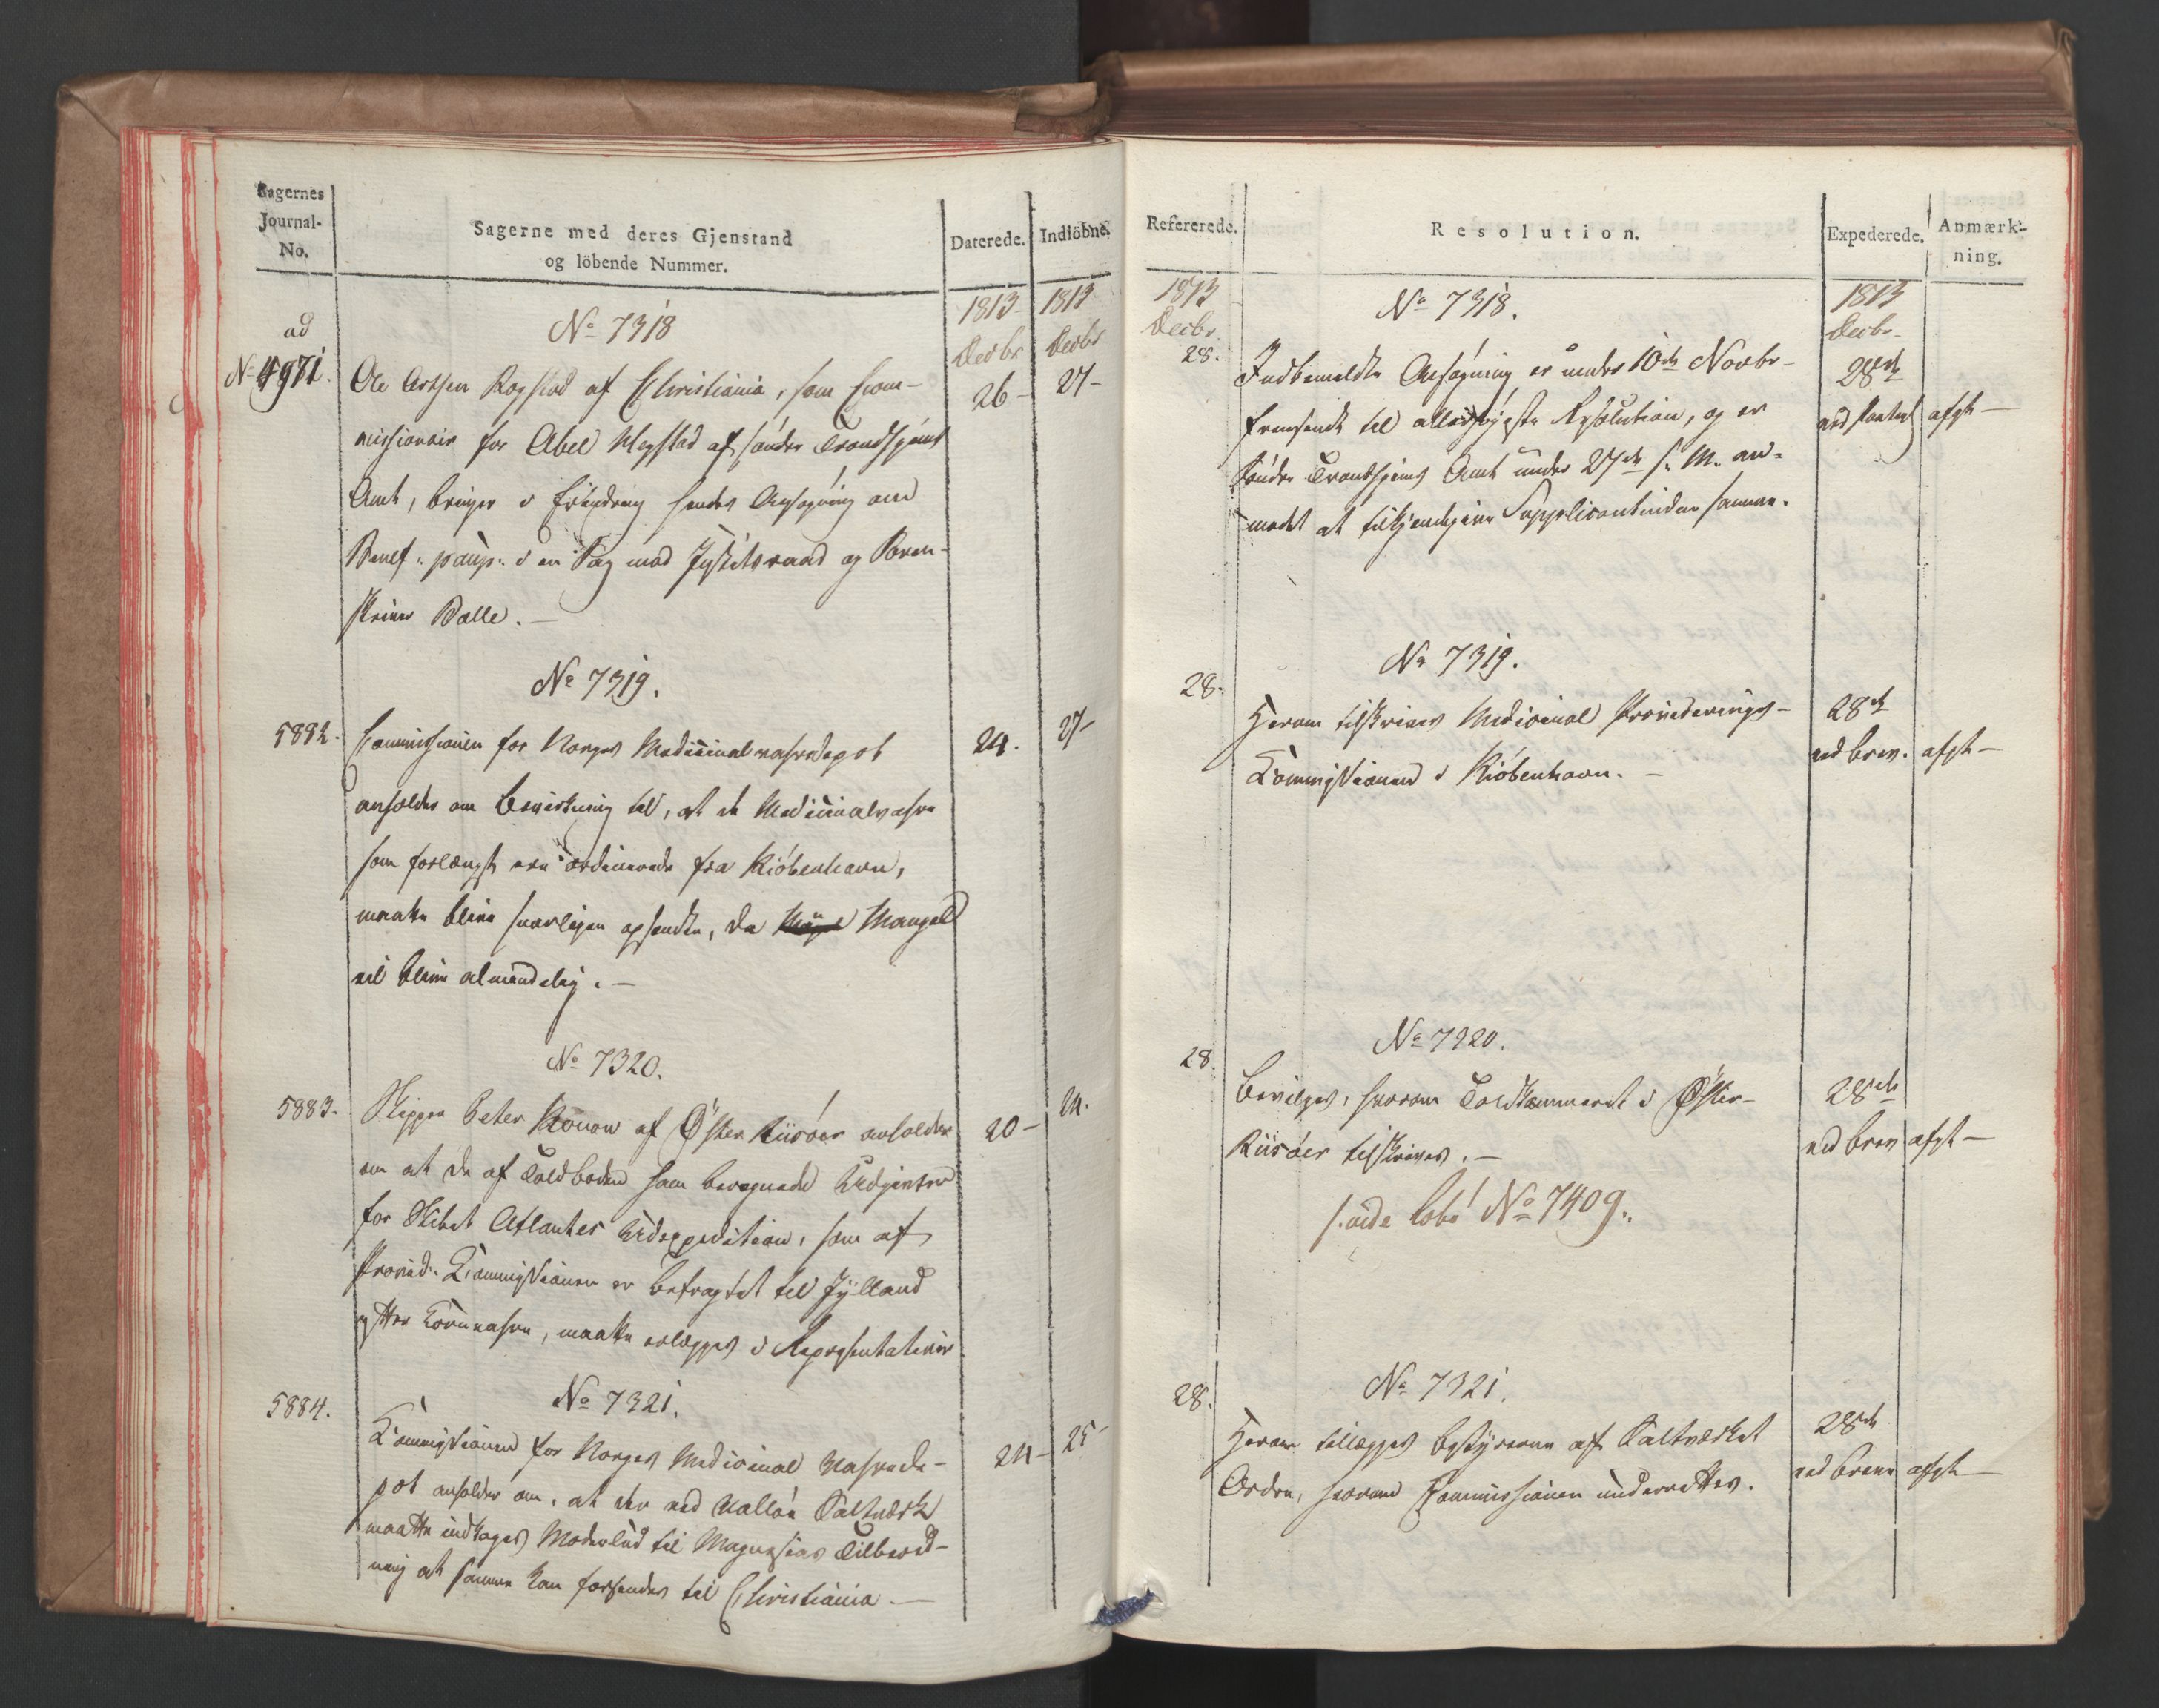 Sagernes
Journal-
No.
Sagerne med deres Gjenstand
og löbende Nummer.
Daterede.
Indlöbne.
1813
Decbr
1813
Decbr
ad
No 4971.
No 7318
26-
27-
Ole Aresen Rogstad af Christiania, som Com-
missionair for Abel Megstad af söndre Trondhjems
Amt, bringer i Erindring hendes Ansøgning om
Benef: paup: i en Sag mod Justitsraad og Soren-
skriver Balle.-
No 7319.
5882.
24.
27-
Commissionen for Norges Medicinalvaredepot
anholder om Bevirkning til, at de Medicinalvahre
som forlængst ere ordinerede fra Kiöbenhavn,
maatte blive snarligen opsendte, da Mangel
vil blive almindelig.-
No 7320.
5883.
20-
24.
Skipper Peter Konow af Øster Riisöer anholder
om at de af Toldboden ham beregnede Udgivter
for Skibet Atlantes Udexpedition, som af
Provid: Commissionen er befragtet til Jylland
efter Kornvahre, maatte erlægges i Repræsentativer
No 7321.
5884.
24-
25-
Commissionen for Norges Medicinal Vahrede-
pot anholder om, at der ved Valløe Saltværk
maatte indtages Moderlud til Magnesias Tilbered-
ning at samme kan forsendes til Christiania.-
Refererede.
Resolution.
Expederede.
Anmærk-
ning.
1813
Decbr
28.
No 7318.
1813
Decbr
28de
ved Paategn
afgk-
Indbemeldte Ansøgning er under 10de Novbr-
fremsendt til allerhöjeste Resolution, og er
Söndre Trondhjems Amt under 27de s. M. an-
modet at tilkjendegive Supplicantinden samme.
No 7319.
28.
Herom tilskrives Medicinal Provideringes-
Commissionen i Kiöbenhavn.-
28de
ved brev.
afgk-
No 7320.
28.
Bevilges, hvorom Toldkammeret i Øster-
Riisöer tilskrives.-
28de
ved brev
afgk-
/:vide No 7409:.
No 7321.
28.
Herom tillægges Bestyrerne af Saltværket
Ordre, hvorom Commissionen underrettes.
28de
ved breve
afgk-